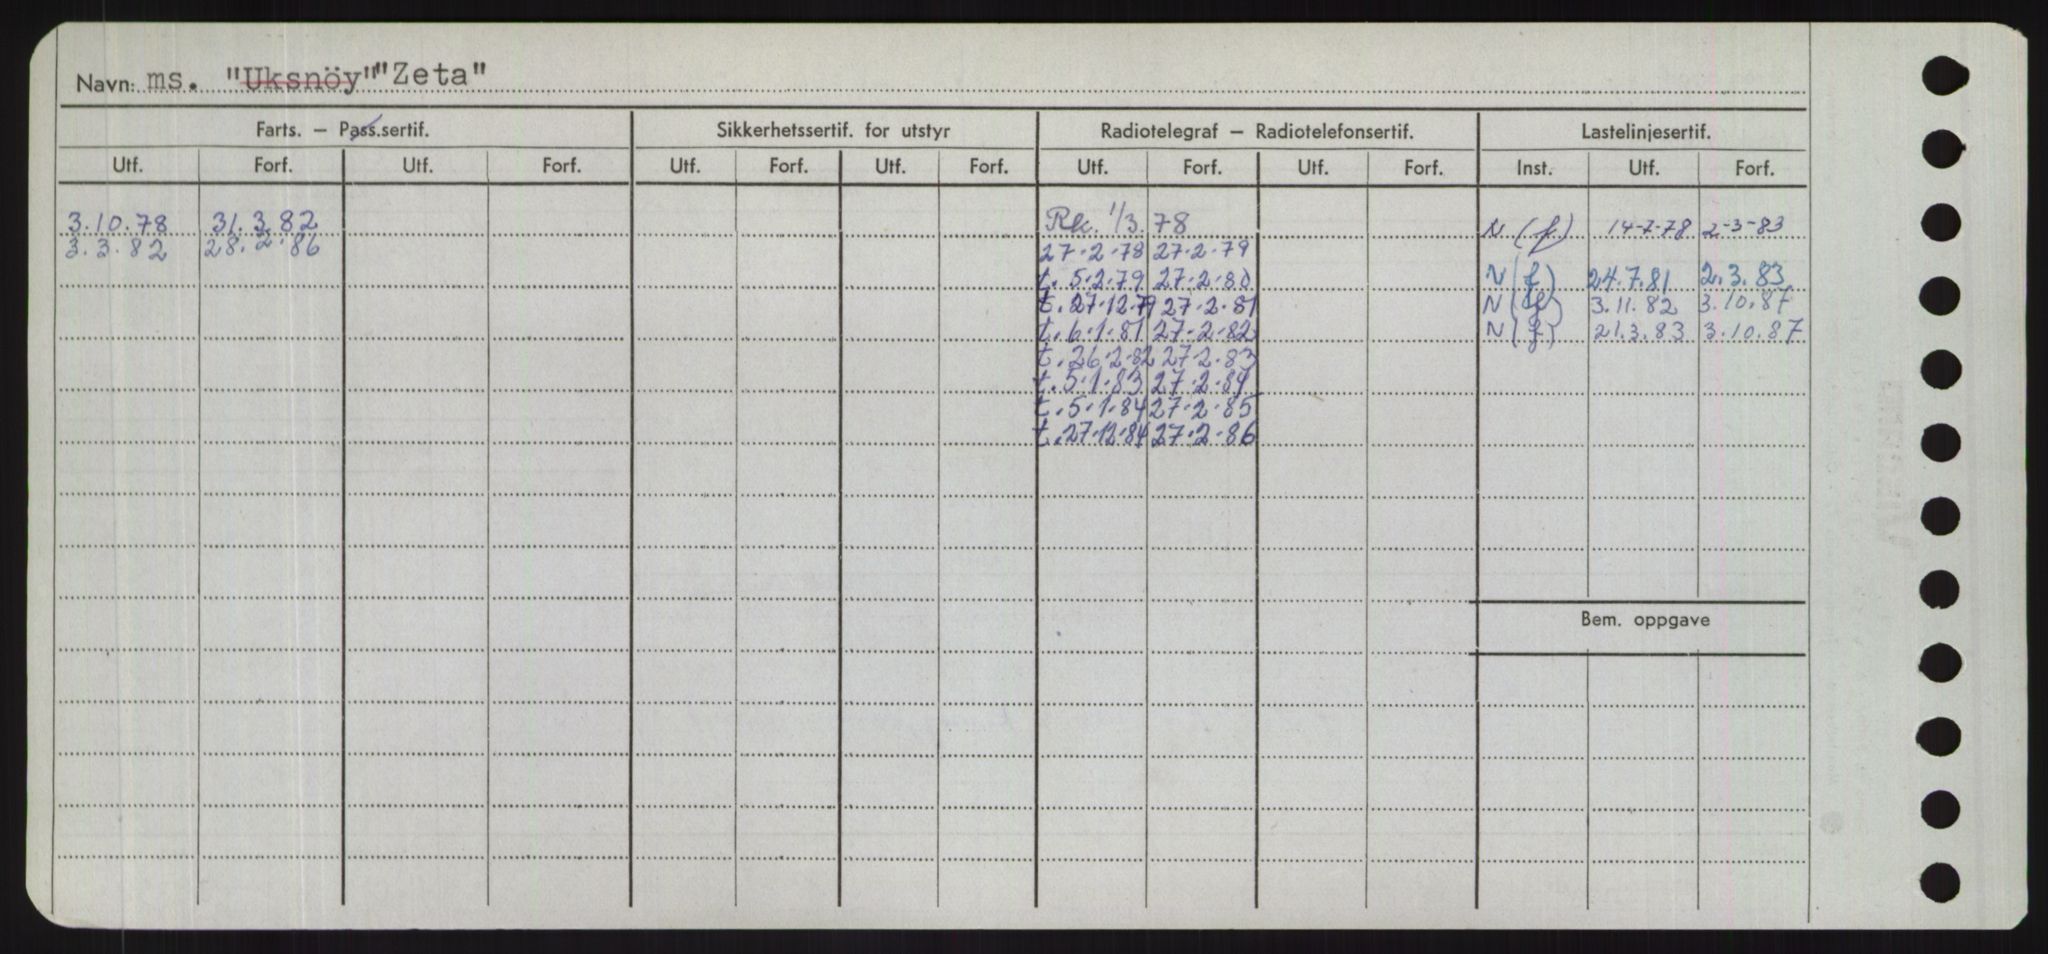 Navn: ms. "Uksnöy" "Zeta"
Farts. – Pass.sertif. Sikkerhetssertif. for utstyr Radiotelegraf – Radiotelefonsertif. Lastelinjesertif.
Utf. Forf. Utf. Forf. Utf. Forf. Utf. Forf. Utf. Forf. Utf. Forf. Inst. Utf. Forf.
3.10.78 31.3.82 Rk. 1/3.78 N (f) 14-7-78 2-3-83
3.3.82 28.2.86 27.2.78 27.2.79
t. 5.2.79 27.2.80 N (f) 24.7.81 2.3.83
t. 27.12.79 27.2.81 N (f) 3.11.82 3.10.87
t. 6.1.81 27.2.82 N (f) 21.3.83 3.10.87
t. 26.2.82 27.2.83
t. 5.1.83 27.2.84
t. 5.1.84 27.2.85
t. 27.12.84 27.2.86
Bem. oppgave